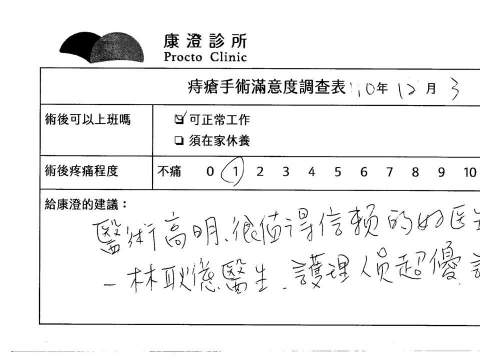 康澄診所
Procto Clinic
痔瘡手術滿意度調查表 10年12月3
術後可以上班嗎
☑ 可正常工作
☐ 須在家休養
術後疼痛程度 不痛 0 1 2 3 4 5 6 7 8 9 10
給康澄的建議:
醫術高明、很值得信賴的好医生
－林耿億醫生、護理人員超優